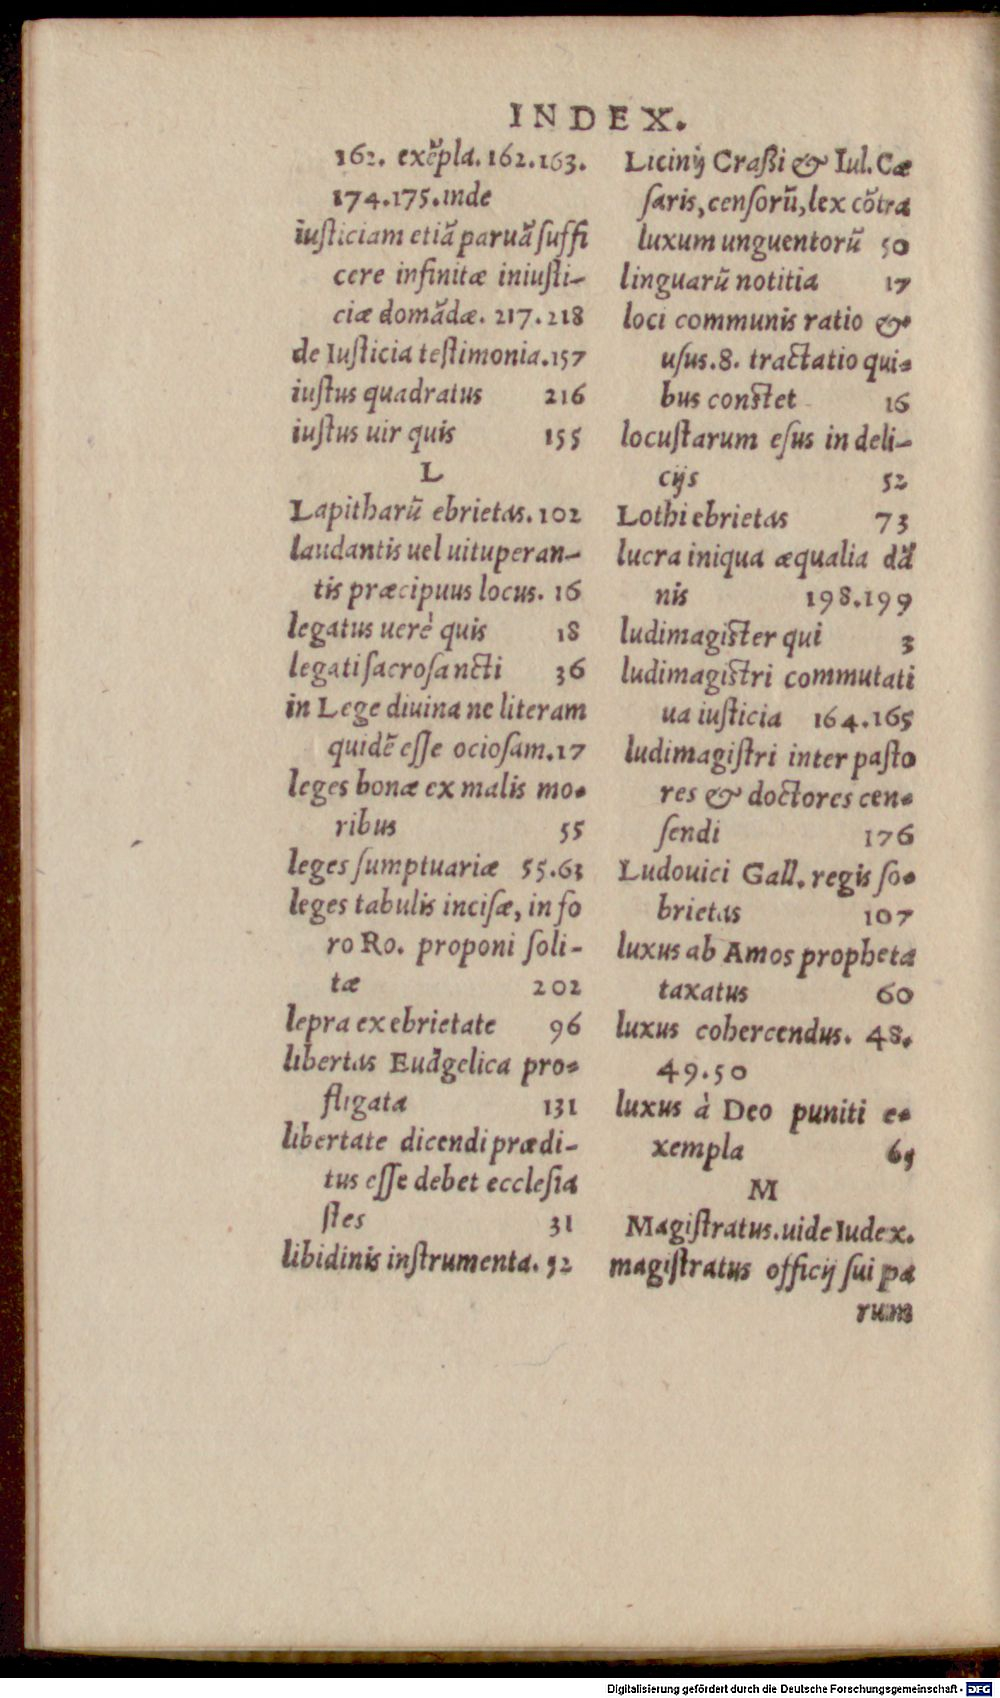 INDEX.
162. exẽpla. 162.163.
174.175.inde
iuſticiam etiã paruã ſuffi
cere infinitæ iniuſti-
ciæ domãdæ. 217.218
de Iuſticia teſtimonia.157
iuſtus quadratus 216
iuſtus uir quis 155
L
Lapitharũ ebrietas.102
laudantis uel uituperan-
tis præcipuus locus. 16
legatus uerè quis 18
legati ſacroſancti 36
in Lege diuina ne literam
quidẽ eſſe ocioſam.17
leges bonæ ex malis mo-
ribus 55
leges ſumptuariæ 55.63
leges tabulis inciſæ, in fo
ro Ro. proponi ſoli-
tæ 202
lepra ex ebrietate 96
libertas Euãgelica pro-
fligata 131
libertate dicendi prædi-
tus eſſe debet eccleſia
ſtes 31
libidinis inſtrumenta. 52
Licinij Craßi & Iul. Cæ
ſaris, cenſorũ, lex cõtra
luxum unguentorũ 50
linguarũ notitia 17
loci communis ratio &
uſus.8. tractatio qui-
bus constet 16
locuſtarum eſus in deli-
cijs 52
Lothi ebrietas 73
lucra iniqua æqualia dã
nis 198.199
ludimagister qui 3
ludimagistri commutati
ua iuſticia 164.165
ludimagiſtri inter paſto
res & doctores cen-
ſendi 176
Ludouici Gall. regis ſo-
brietas 107
luxus ab Amos propheta
taxatus 60
luxus cohercendus. 48.
49.50
luxus à Deo puniti e-
xempla 65
M
Magiſtratus.uide Iudex.
magiſtratus officij ſui pa
rum
Digitalisierung gefördert durch die Deutsche Forschungsgemeinschaft - DFG